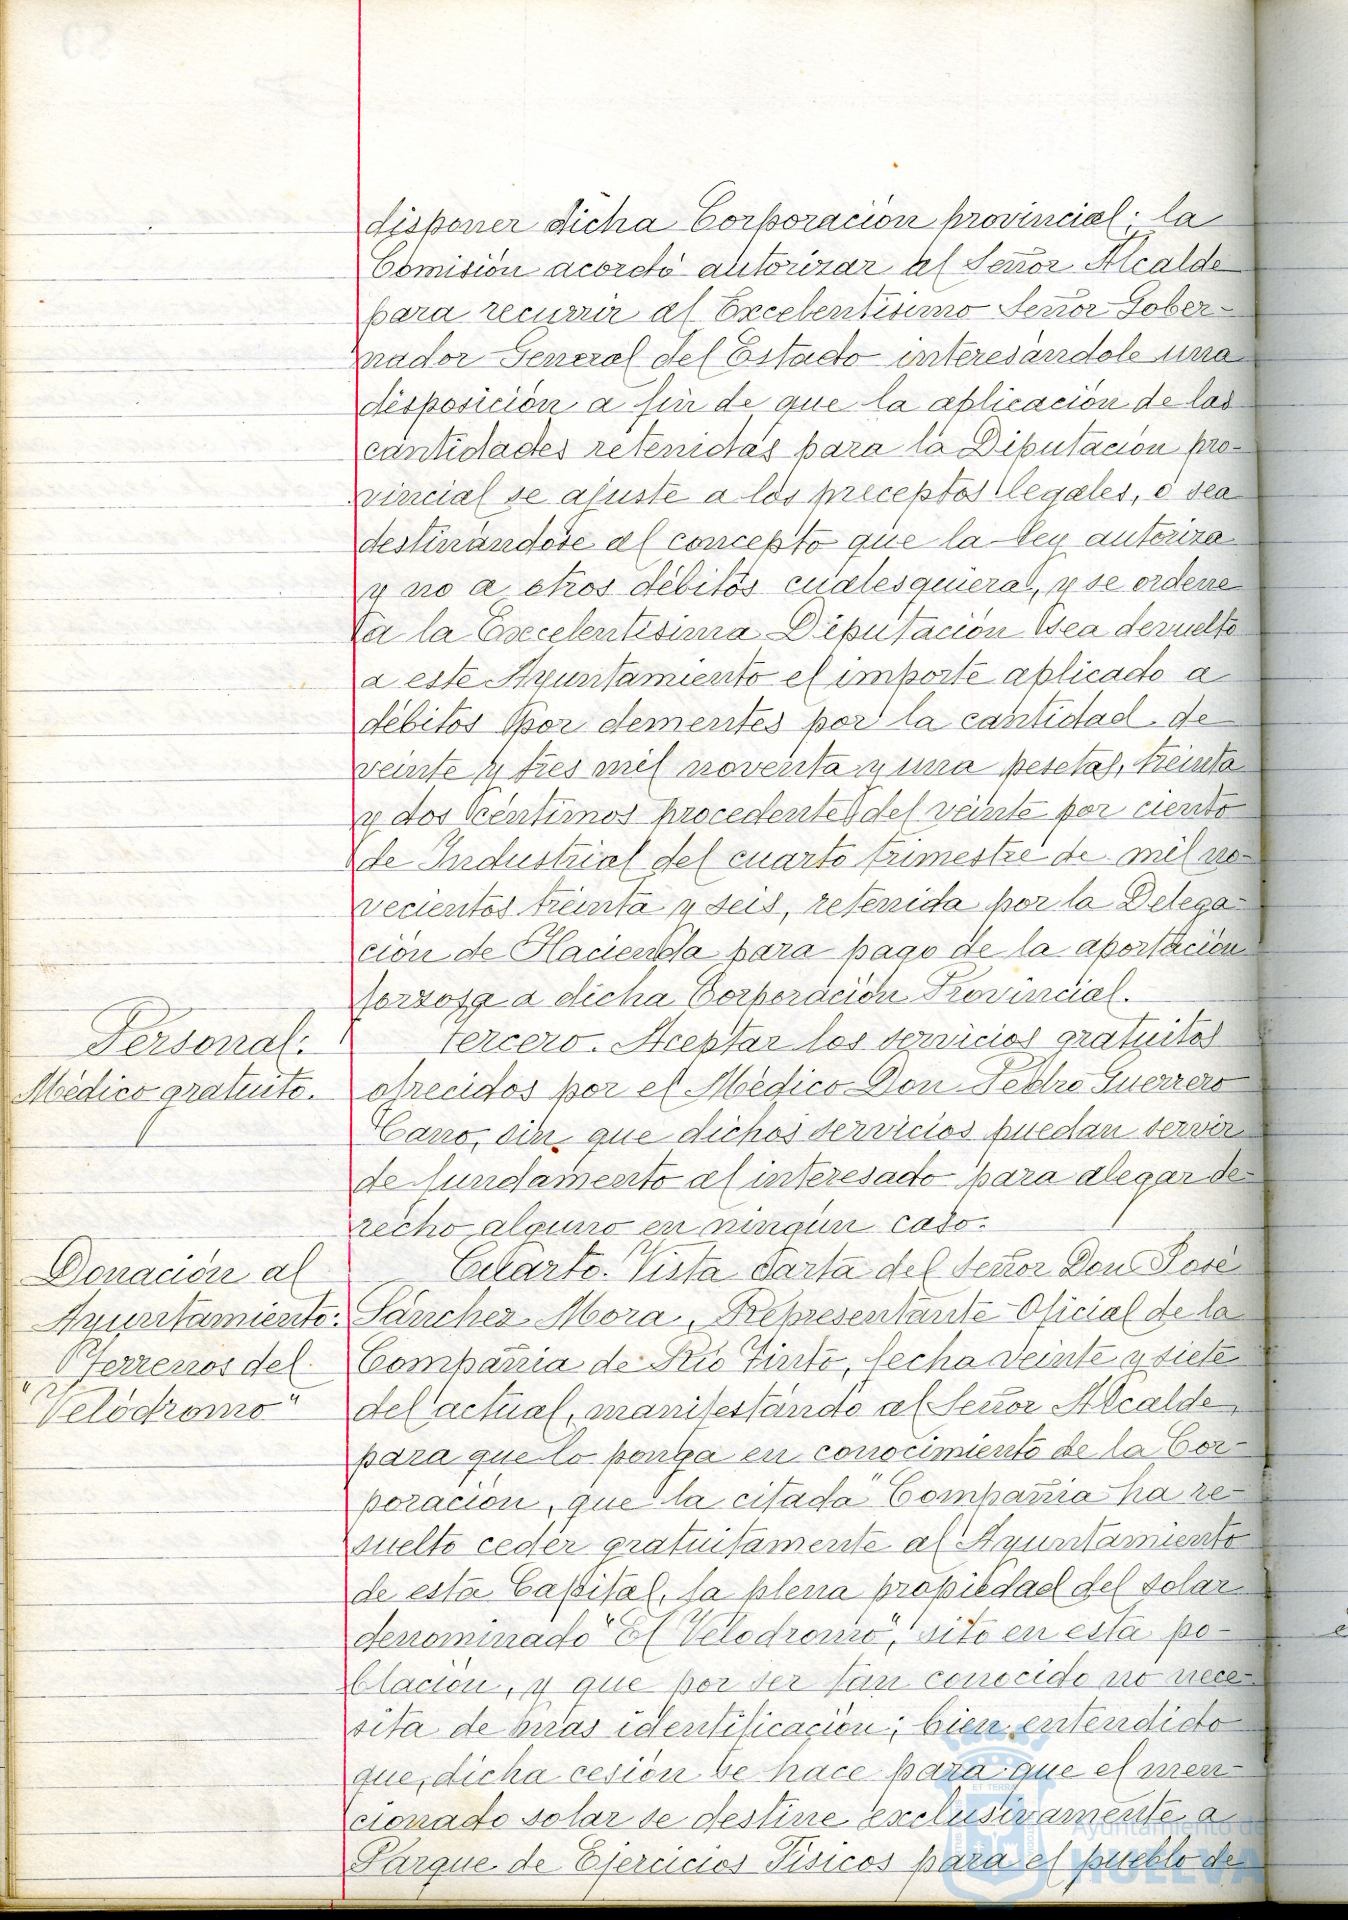 disponer dicha Corporación provincial; la
Comisión acordó autorizar al Señor Alcalde
para recurrir al Excelentísimo Señor Gober-
nador General del Estado interesándole una
disposición a fin de que la aplicación de las
cantidades retenidas para la Diputación pro-
vincial se ajuste a los preceptos legales, o sea
destinándose al concepto que la ley autoriza
y no a otros débitos cualesquiera, y se ordene
a la Excelentísima Diputación sea devuelto
a este Ayuntamiento el importe aplicado a
débitos por dementes por la cantidad de
veinte y tres mil noventa y una pesetas, treinta
y dos céntimos procedente del veinte por ciento
de Industrial del cuarto trimestre de mil no-
vecientos treinta y seis, retenida por la Delega-
ción de Hacienda para pago de la aportación
forzosa a dicha Corporación Provincial.
Personal:
Médico gratuito.
Tercero. Aceptar los servicios gratuitos
ofrecidos por el Médico Don Pedro Guerrero
Cano, sin que dichos servicios puedan servir
de fundamento al interesado para alegar de-
recho alguno en ningún caso.
Donación al
Ayuntamiento:
Terrenos del
"Velódromo"
Cuarto. Vista carta del Señor Don José
Sánchez Mora, Representante Oficial de la
Compañia de Río Tinto, fecha veinte y siete
del actual, manifestando al Señor Alcalde,
para que lo ponga en conocimiento de la Cor-
poración, que la citada Compañia ha re-
suelto ceder gratuitamente al Ayuntamiento
de esta Capital, la plena propiedad del solar
denominado "El Velodromo", sito en esta po-
blación, y que por ser tan conocido no nece-
sita de mas identificación; bien entendido
que, dicha cesión se hace para que el men-
cionado solar se destine exclusivamente a
Parque de Ejercicios Físicos para el pueblo de
Ayuntamiento de
HUELVA